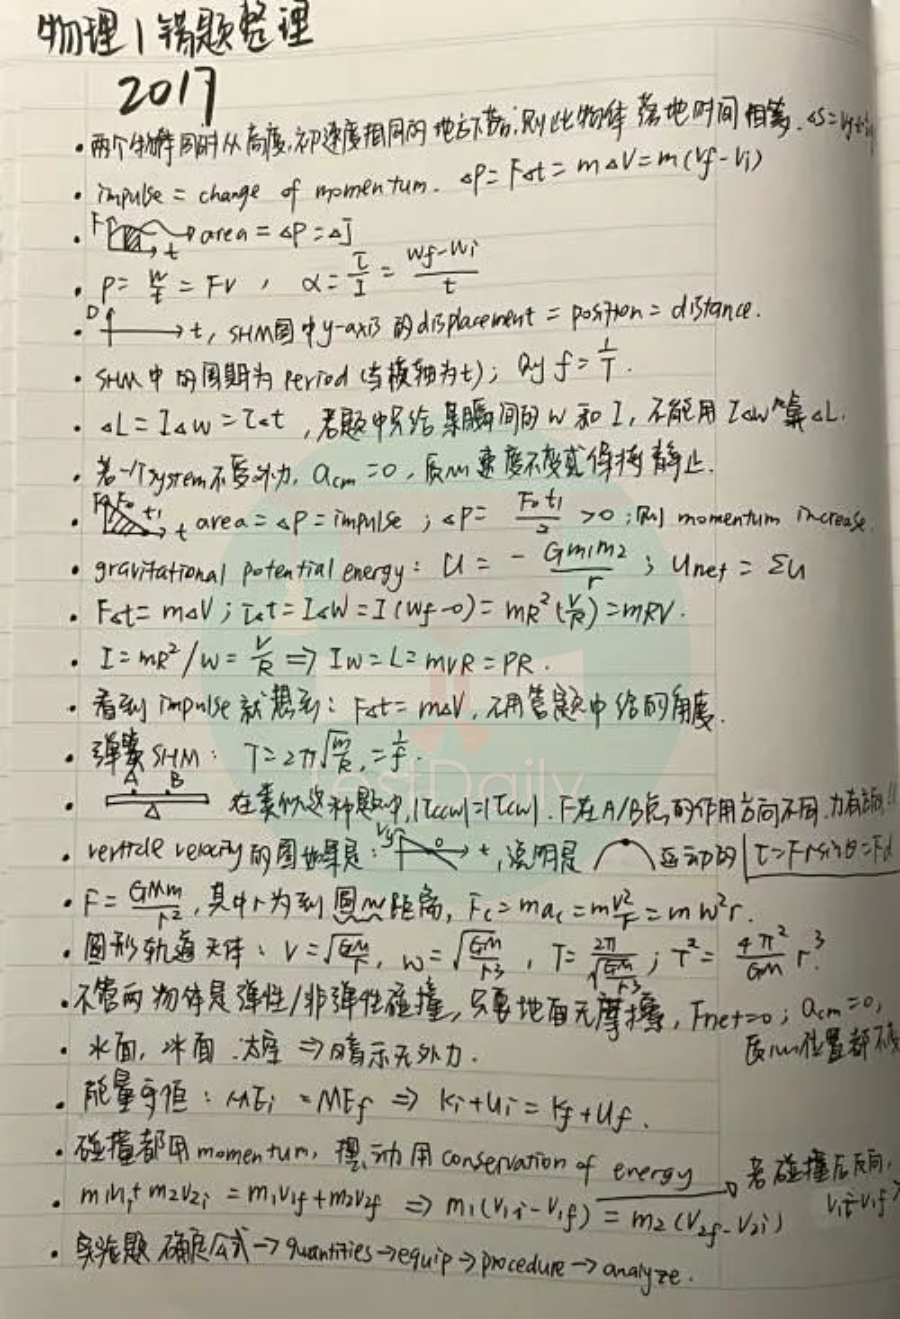 物理1错题整理
2017
· 两个物体同时从高度,初速度相同的地方下落,则此物体落地时间相等. ΔS=
· impulse = change of momentum. ΔP = FΔt = mΔV = m(Vf-Vi)
· F t area = ΔP = ΔJ
· P = W/t = FV , α = τ/I = (Wf-Wi)/t
· D t, SHM图中y-axis的displacement = position = distance.
· SHM中的周期为period (当横轴为t); f = 1/T.
· ΔL = IΔw = τΔt ,若题中只给某瞬间的w和I,不能用IΔw算ΔL.
· 若一个system不受外力, acm = 0, 质心速度不变或保持静止.
· F F₀ t₁ t area = ΔP = impulse ; ΔP = F₀t₁/2 > 0 ;则momentum increase.
· gravitational potential energy: U = - Gm₁m₂/r ; Unet = ΣU
· FΔt = mΔV ; τΔt = IΔW = I(Wf-0) = mR²(V/R) = mRV.
· I = mR² / w = V/R ⇒ Iw = L = mVR = PR.
· 看到impulse就想到: FΔt = mΔV, 不用管题中给的角度.
· 弹簧SHM: T = 2π√(m/k) = 1/f.
· A B 在类似这种题中, |τccw| = |τcw|. F在A/B点的作用方向不同,力有方向!!
· verticle velocity的图如果是: Vy 0 t, 说明是 运动的 τ = Frsinθ = Fd
· F = GMm/r², 其中r为到圆心距离, Fc = mac = mV²/r = mw²r.
· 圆形轨道天体: V = √(GM/r), w = √(GM/r³), T = 2π/√(GM/r³) ; T² = 4π²/GM r³.
· 不管两物体是弹性/非弹性碰撞,只要地面无摩擦, Fnet = 0 ; acm = 0,
质心位置都不变
· 水面,冰面 太空 ⇒ 暗示无外力.
· 能量守恒: MEi = MEf ⇒ Ki + Ui = Kf + Uf.
· 碰撞都用momentum, 摆动用conservation of energy
若碰撞后反向,
· m₁V₁i + m₂V₂i = m₁V₁f + m₂V₂f ⇒ m₁(V₁i - V₁f) = m₂(V₂f - V₂i)
· 实验题 确定公式 → quantities → equip → procedure → analyze.